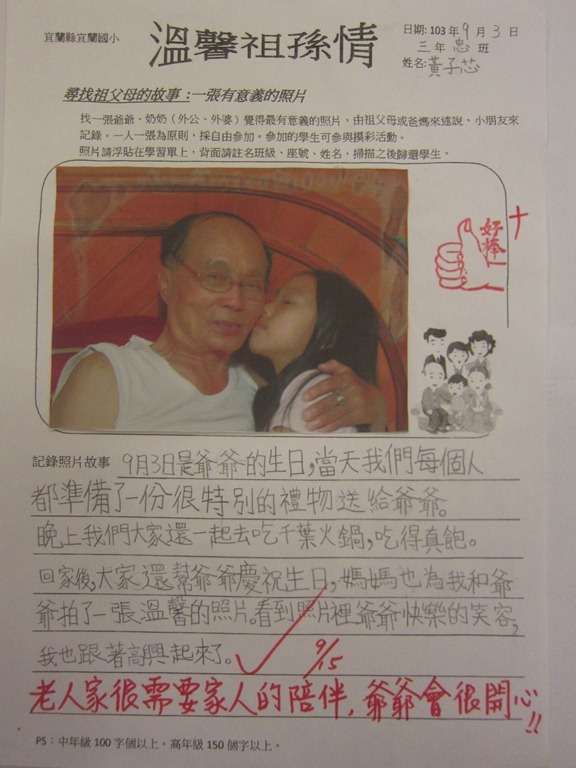 宜蘭縣宜蘭國小
溫馨祖孫情
日期:103年9月3日
三年忠班
姓名:黃子芯
尋找祖父母的故事:一張有意義的照片
找一張爺爺、奶奶(外公、外婆)覺得最有意義的照片,由祖父母或爸媽來述說,小朋友來
記錄。一人一張為原則,採自由參加。參加的學生可參與摸彩活動。
照片請浮貼在學習單上,背面請註名班級、座號、姓名,掃描之後歸還學生。
好棒
十
記錄照片故事 9月3日是爺爺的生日,當天我們每個人
都準備了一份很特別的禮物送給爺爺。
晚上我們大家還一起去吃千葉火鍋,吃得真飽。
回家後,大家還幫爺爺慶祝生日,媽媽也為我和爺
爺拍了一張溫馨的照片。看到照片裡爺爺快樂的笑容,
我也跟著高興起來了。
9/15
老人家很需要家人的陪伴,爺爺會很開心!!
PS:中年級100字個以上。高年級150個字以上。